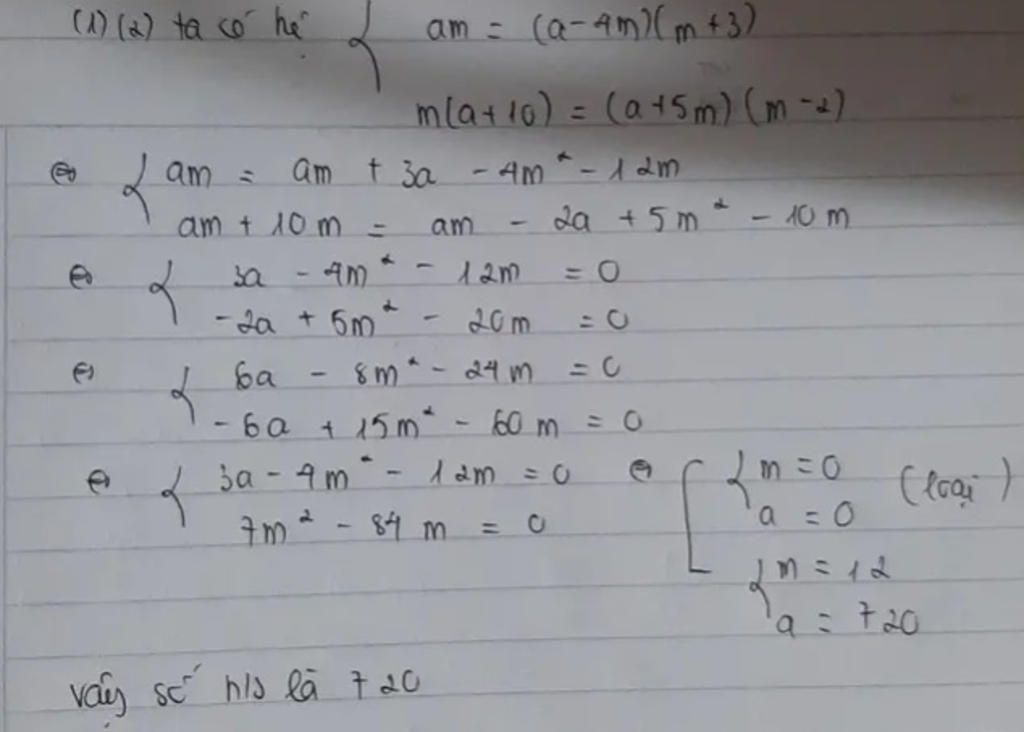 (1)(2) ta có hệ { am = (a-4m)(m+3)
m(a+10) = (a+5m)(m-2)
⇔ { am = am + 3a - 4m² - 12m
am + 10m = am - 2a + 5m² - 10m
⇔ { 3a - 4m² - 12m = 0
-2a + 5m² - 20m = 0
⇔ { 6a - 8m² - 24m = 0
-6a + 15m² - 60m = 0
⇔ { 3a - 4m² - 12m = 0 ⇔ [ { m = 0 (loại)
7m² - 84m = 0 a = 0
{ m = 12
a = 720
vậy số h/s là 720